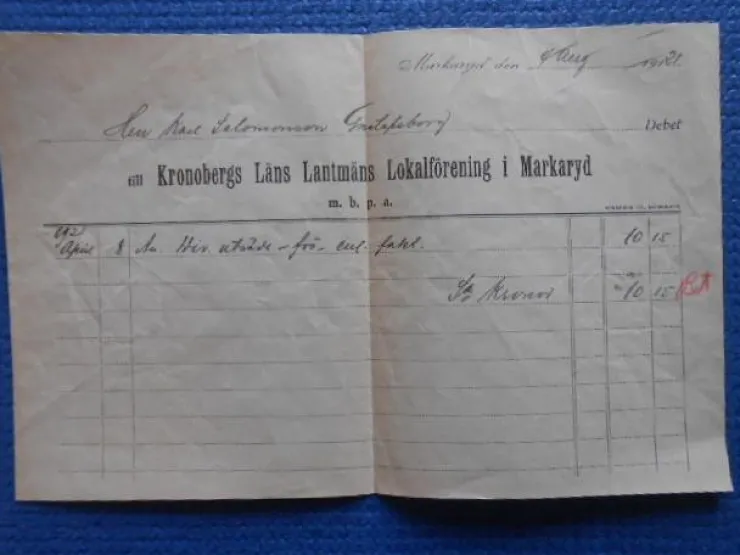 Markaryd den 9 Aug 1921.
Herr Karl Salomonsson Gustafsborg Debet
till Kronobergs Läns Lantmäns Lokalförening i Markaryd
m. b. p. a.
1921
April 8 An. Div. utsäde-frö- enl. fakt. 10 15
Sa Kronor 10 15 Bet